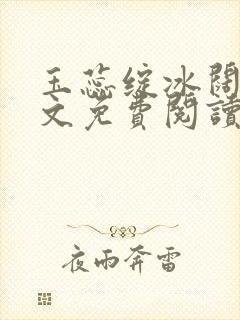 玉蕊绽冰阔
文免費閱讀
夜雨奔雷